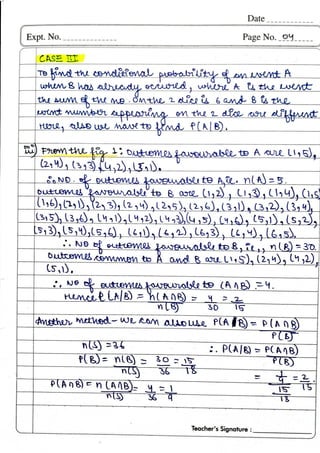 Date
Expt. No.
Page No. 04
CASE III
To find the conditional probability of an event A
when B has already occured, where A is the event
the sum of the no. on the 2 dice is 6 and B is the
event number appearing on the 2 dice are different
Here, also we have to find P(A|B).
From the fig 1: Outcomes favourable to A are (1,5),
(2,4),(3,3),(4,2),(5,1).
∴ NO. of outcomes favourable to A, ie. n(A) = 5.
outcomes favourable to B are (1,2), (1,3),(1,4),(1,5
(1,6),(2,1),(2,3),(2,4),(2,5),(2,6),(3,1),(3,2),(3,4),
(3,5),(3,6),(4,1),(4,2),(4,3),(4,5),(4,6),(5,1),(5,2),
(5,3),(5,4),(5,6), (6,1),(6,2),(6,3), (6,4),(6,5).
∴ NO of outcomes favourable to B, ie., n(B) = 30.
Outcomes common to A and B are (1,5),(2,4),(4,2),
(5,1).
∴ NO of outcomes favourable to (A∩B) = 4.
Hence P(A/B) = n(A∩B) = 4 = 2
n(B) 30 15
Another method - we can also use P(A/B) = P(A∩B)
P(B)
n(S) = 36 ∴ P(A/B) = P(A∩B)
P(B) = n(B) = 30 = 15 P(B)
n(S) 36 18
P(A∩B) = n(A∩B) = 4 = 1
n(S) 36 9
Teacher's Signature :